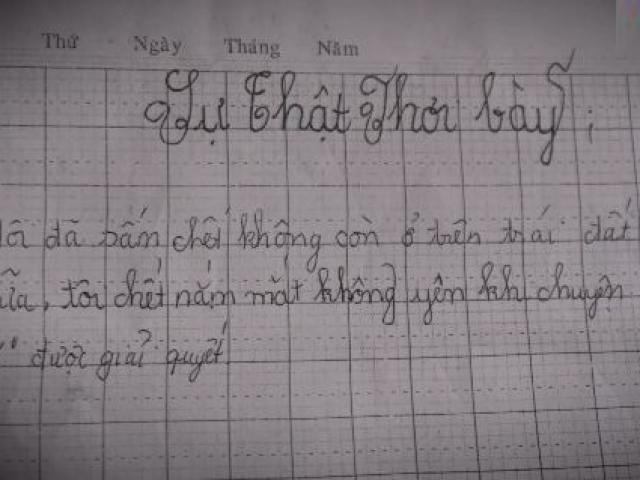 Thứ Ngày Tháng Năm
Sự thật Phơi bày
đã chết không còn ở trên trái đất
tôi chết nằm mắt không yên khi chuyện
được giải quyết